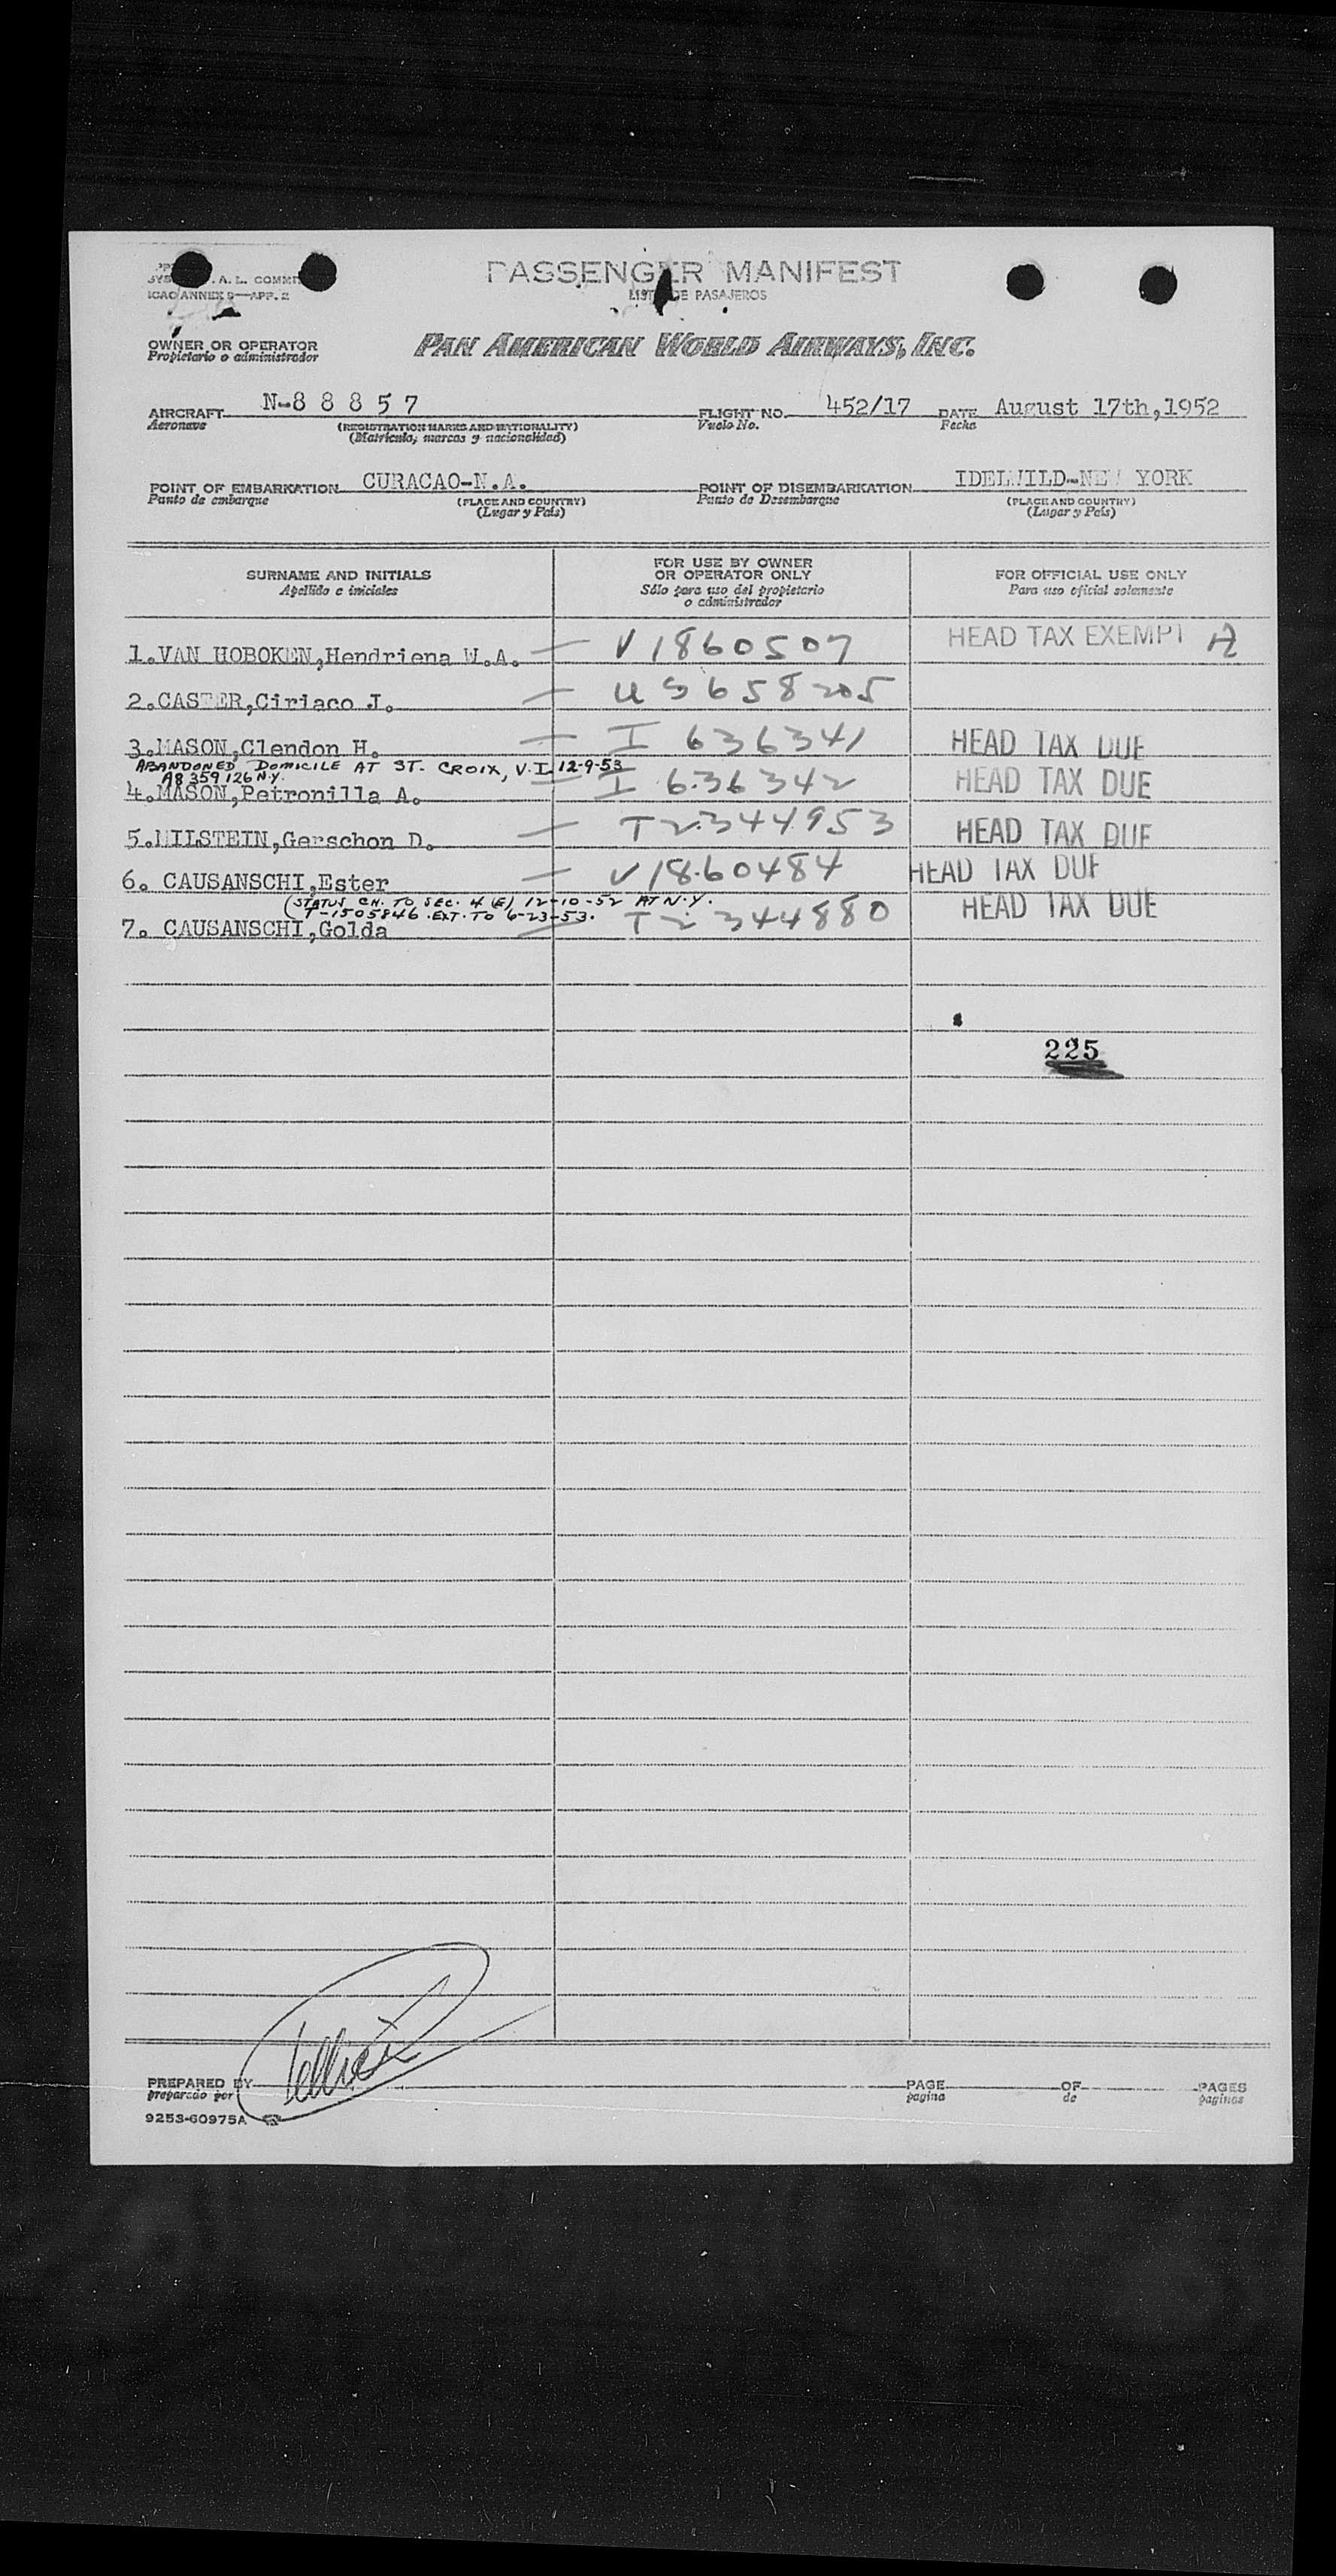 A. L. COMMI
ICAO ANNEX 9—APP. 2
PASSENGER MANIFEST
LISTA DE PASAJEROS
OWNER OR OPERATOR
Propietario o administrador
PAN AMERICAN WORLD AIRWAYS, INC.
AIRCRAFT N-8 8 8 5 7 FLIGHT NO. 452/17 DATE August 17th,1952
Aeronave (REGISTRATION MARKS AND NATIONALITY) Vuelo No. Fecha
(Matrícula, marcas y nacionalidad)
POINT OF EMBARKATION CURACAO-N.A. POINT OF DISEMBARKATION IDELWILD-NEW YORK
Punto de embarque (PLACE AND COUNTRY) Punto de Desembarque (PLACE AND COUNTRY)
(Lugar y País) (Lugar y País)
SURNAME AND INITIALS FOR USE BY OWNER OR OPERATOR ONLY FOR OFFICIAL USE ONLY
Apellido e iniciales Sólo para uso del propietario o administrador Para uso oficial solamente
1.VAN HOBOKEN,Hendriena W.A. — V 1860507 HEAD TAX EXEMPT
2.CASTER,Ciriaco J. — U S 658205
3.MASON,Clendon H. — I 636341 HEAD TAX DUE
ABANDONED DOMICILE AT ST. CROIX, V.I. 12-9-53
A8 359 126 N.Y.
4.MASON,Petronilla A. — I 636342 HEAD TAX DUE
5.MILSTEIN,Gerschon D. — T 2344953 HEAD TAX DUE
6. CAUSANSCHI,Ester — V 1860484 HEAD TAX DUE
(STATUS CH. TO SEC. 4 (E) 12-10-52 AT N.Y.
T-1505846 . EXT. TO 6-23-53.
7. CAUSANSCHI,Golda — T 2 344880 HEAD TAX DUE
225
PREPARED BY PAGE OF PAGES
preparado por pagina de paginas
9253-60975A